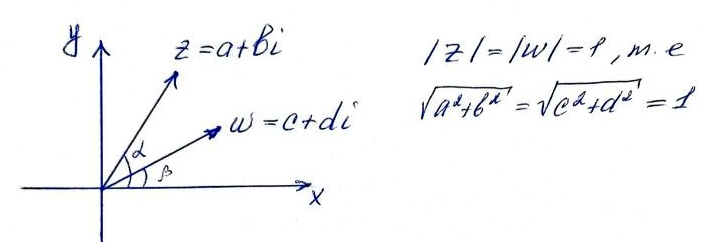 y
z=a+bi
w=c+di
α
β
x
|z|=|w|=1, т.е
√a²+b² = √c²+d² = 1